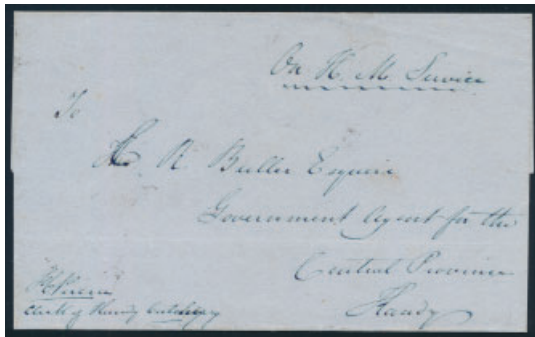 On H. M. Service
To
R Buller Esquire
Government Agent for the
Central Province
Kandy
Clerk of Kandy